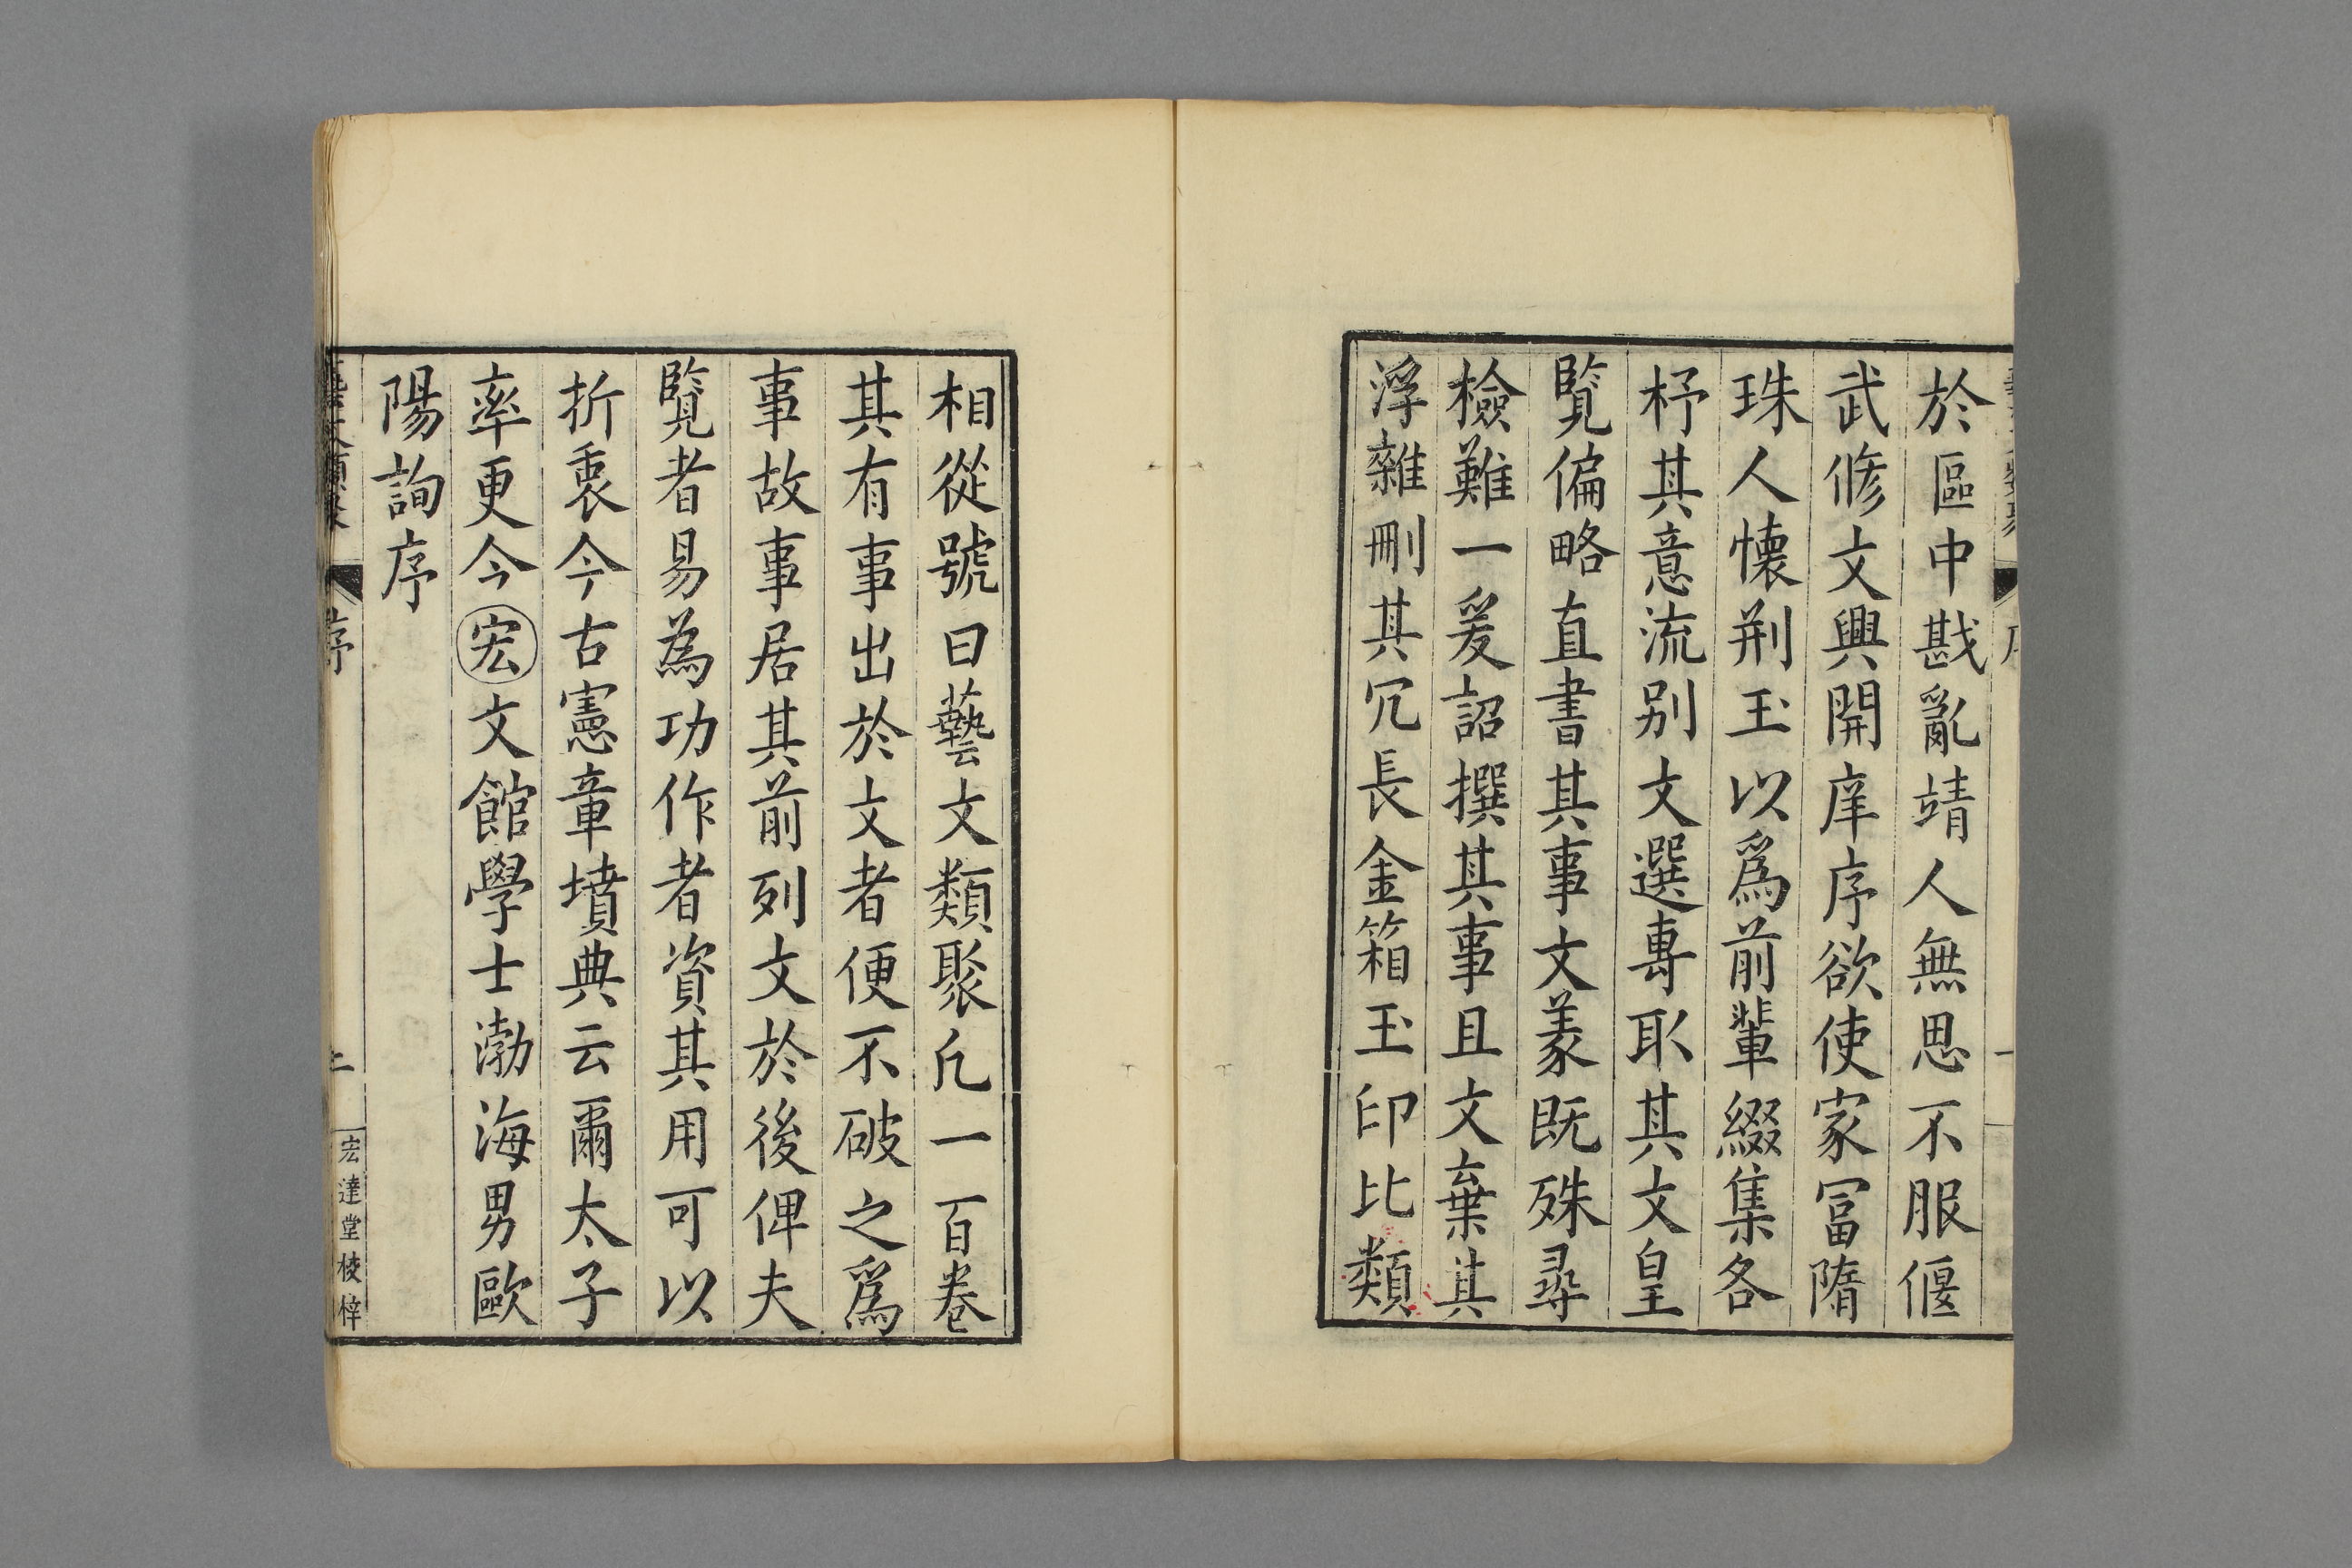 於區中戡亂靖人無思不服偃
武脩文興開庠序欲使家冨隋
珠人懷荆玉以爲前輩綴集各
杼其意流别文選專取其文皇
覽偏略直書其事文義既殊尋
檢難一爰詔撰其事且文棄其
浮雜刪其冗長金箱玉印比類
相從號曰藝文類聚凡一百卷
其有事出於文者便不破之爲
事故事居其前列文於後俾夫
覽者易為功作者資其用可以
折衷今古憲章墳典云爾太子
率更令宏文館學士渤海男歐
陽詢序
藝文類聚 序 二 宏達堂校梓